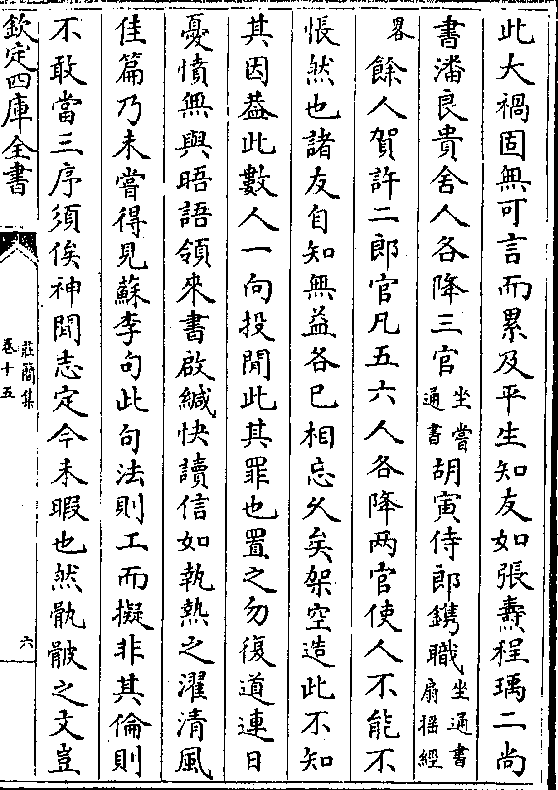 此大禍固無可言而累及平生知友如張燾程瑀二尚
書潘良貴舍人各降三官坐嘗通書胡寅侍郎鐫職坐通書扇摇經
畧餘人賀許二郎官凡五六人各降两官使人不能不
悵然也諸友自知無益各已相忘久矣架空造此不知
其因葢此數人一向投閒此其罪也置之勿復道連日
憂憤無與晤語領來書啟緘快讀信如執熱之濯清風
佳篇乃未嘗得見蘇李句此句法則工而擬非其倫則
不敢當三序須俟神閒志定今未暇也然骩骳之文豈
欽定四庫全書
莊簡集
卷十五
六